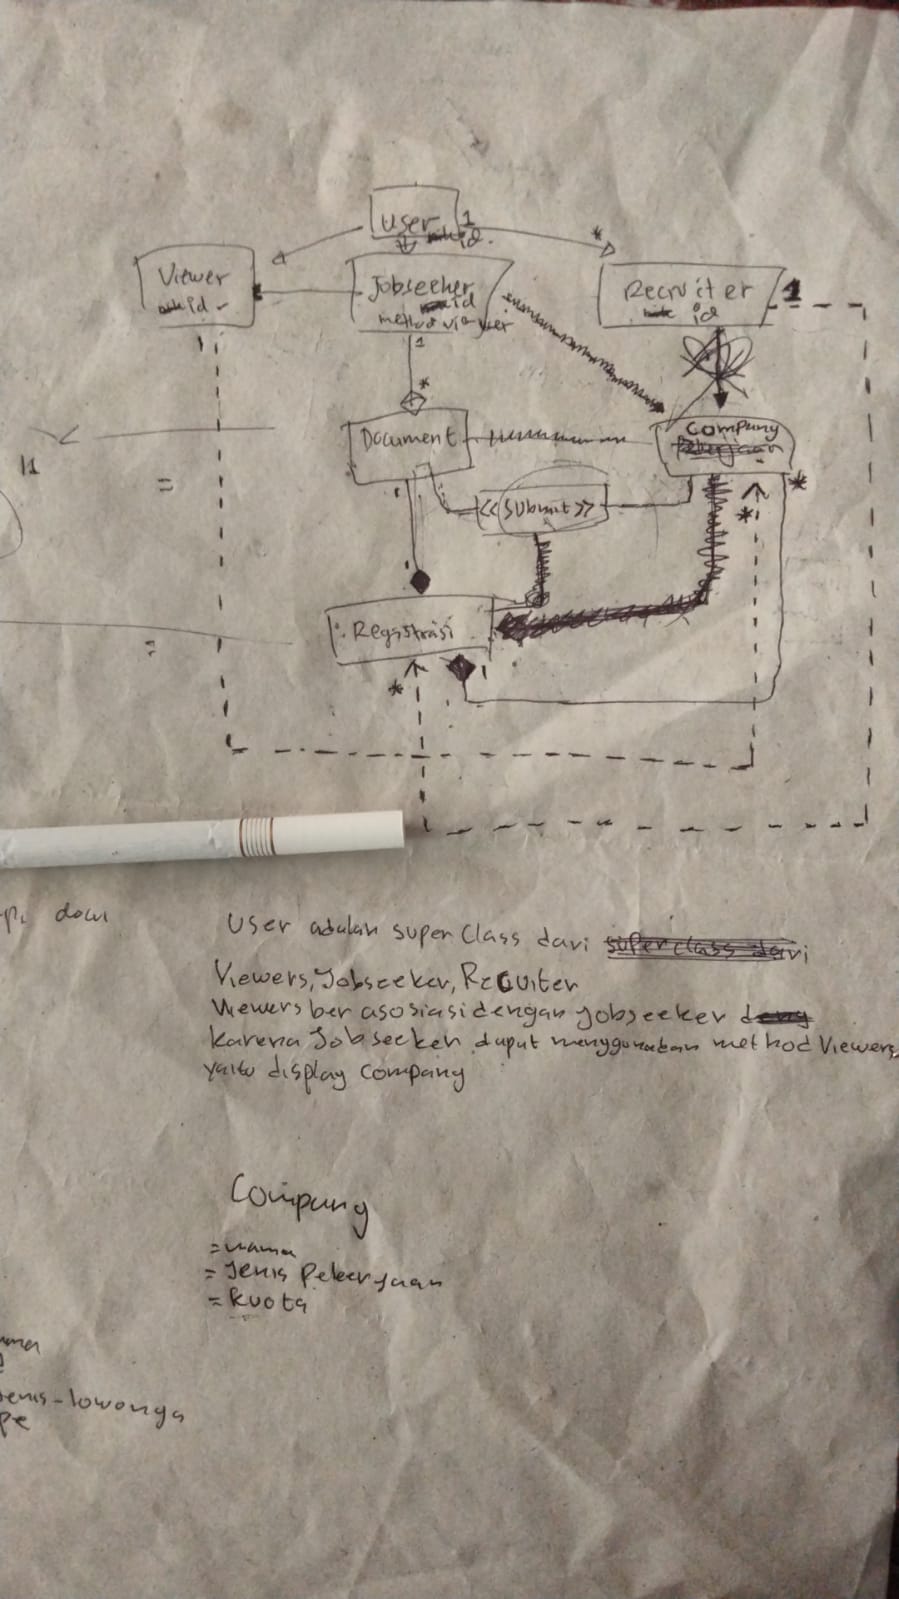 User 1
id.
*
Viewer
id -
Jobseeker
id
method viewer
Recruiter 1
id
1
1
*
Document
Company
*
<<Submit>>
*
11
=
=
Registrasi
1
*
dan
User adalah super Class dari super class dari
Viewers, Jobseeker, Recruiter
Viewers ber asosiasi dengan jobseeker deng
karena Jobseeker dapat menggunakan method Viewers,
yaitu display Company
Company
= nama
= Jenis Pekerjaan
= kuota
enis-lowonga
pe